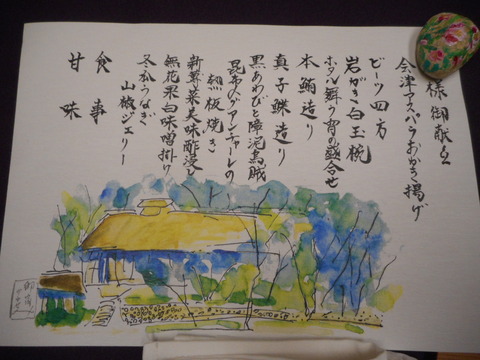 様御献立
会津アスパラおかき揚げ
ビーツ四方
岩がき白玉椀
ホタル舞う宵の盛合せ
本鮪造り
真子鰈造り
黒あわびと障泥烏賊
昆布〆グアンチャーレの
熱板焼き
新蓴菜美味酢浸し
無花果白味噌掛け
冬瓜うなぎ
山椒ジェリー
食事
甘味